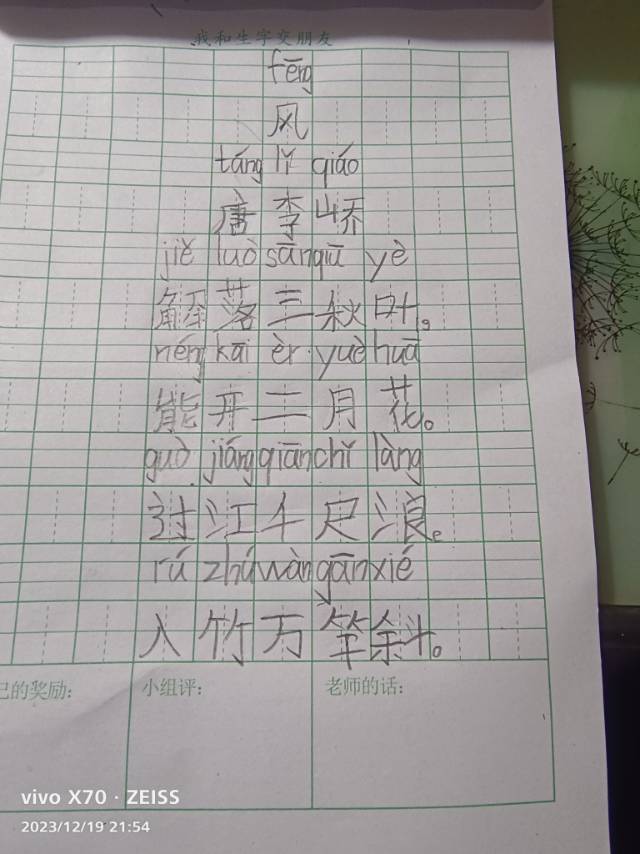 我和生字交朋友
fēng
风
táng lǐ qiáo
唐李峤
jiě luò sān qiū yè
解落三秋叶，
néng kāi èr yuè huā
能开二月花。
guò jiáng qiān chǐ làng
过江千尺浪。
rú zhú wàn gān xié
入竹万竿斜。
己的奖励：
小组评：
老师的话：
vivo X70 · ZEISS
2023/12/19 21:54